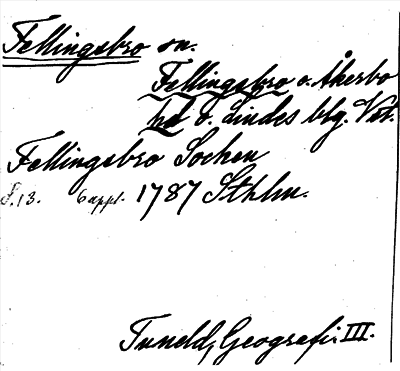 Fellingsbro sn.
Fellingsbro o. Åkerbo
hd o. Lindes blg. Vstl.
Fellingsbro Sochen
S. 13. 6 uppl. 1787 Sthlm.
Tuneld, Geografi. III.